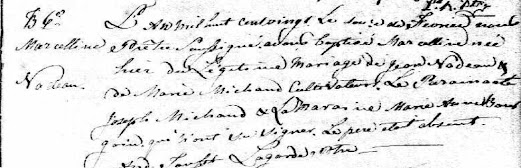 B 6e L'An mil huit cens vingt Le seize de Fevrier nous
Marcelline Prêtre Soussigné avons baptisé Marcelline née
Nadeau. hier du légitime mariage de Jean Nadeau &
de Marie Michaud Cultivateurs. Le Parain a été
Joseph Michaud & La Maraine Marie Anne
qui n'ont su signer. Le père était absent.
Lagarde Ptre